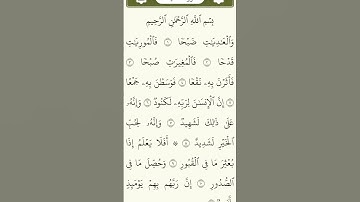 بِسْمِ ٱللَّهِ ٱلرَّحْمَٰنِ ٱلرَّحِيمِ
وَٱلْعَٰدِيَٰتِ ضَبْحًا ۝ فَٱلْمُورِيَٰتِ
قَدْحًا ۝ فَٱلْمُغِيرَٰتِ صُبْحًا ۝
فَأَثَرْنَ بِهِۦ نَقْعًا ۝ فَوَسَطْنَ بِهِۦ جَمْعًا
۝ إِنَّ ٱلْإِنسَٰنَ لِرَبِّهِۦ لَكَنُودٌ ۝ وَإِنَّهُۥ
عَلَىٰ ذَٰلِكَ لَشَهِيدٌ ۝ وَإِنَّهُۥ لِحُبِّ
ٱلْخَيْرِ لَشَدِيدٌ ۝ ۞ أَفَلَا يَعْلَمُ إِذَا
بُعْثِرَ مَا فِى ٱلْقُبُورِ ۝ وَحُصِّلَ مَا فِى
ٱلصُّدُورِ ۝ إِنَّ رَبَّهُم بِهِمْ يَوْمَئِذٍ